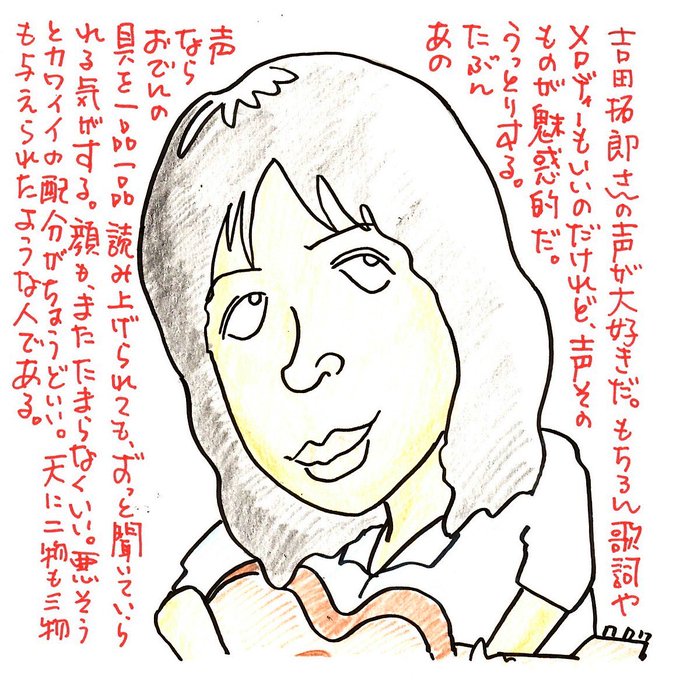 吉田拓郎さんの声が大好きだ。もちろん歌詞や
メロディーもいいのだけれど、声その
ものが魅惑的だ。
うっとりする。
たぶん
あの
声
なら
おでんの
具を一品一品読み上げられても、ずっと聞いていら
れる気がする。顔も、また たまらなくいい。悪そう
とカワイイの配分がちょうどいい。天に二物も三物
も与えられたような人である。